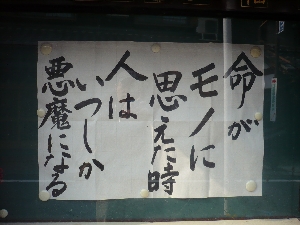 命が
モノに
思えた時
人は
いつしか
悪魔になる